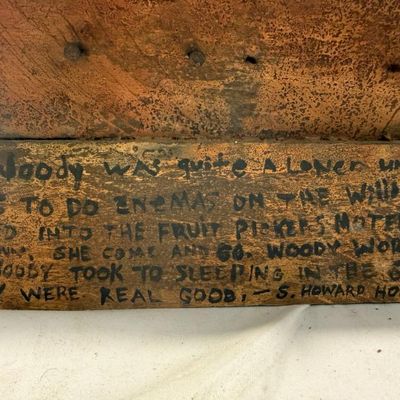 Woody was quite a loner un
TO DO ENEMAS ON THE WILL
D INTO THE FRUIT PICKERS MOTE
SHE COME AND GO. WOODY WOR
WOODY TOOK TO SLEEPING IN THE
WERE REAL GOOD, — S. HOWARD HO